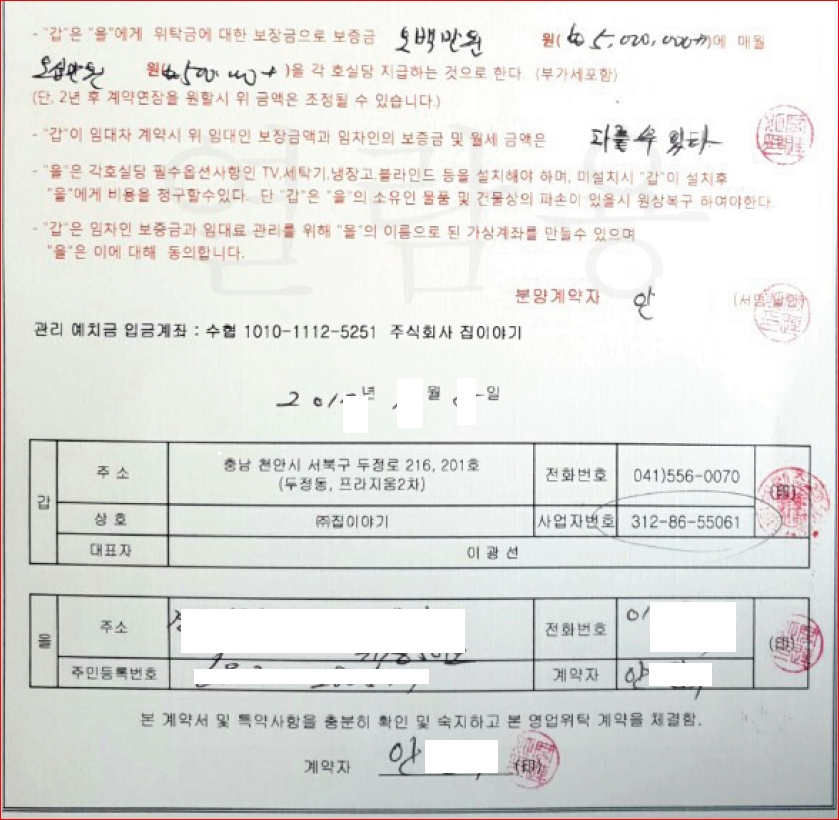 - "갑"은 "을"에게 위탁금에 대한 보장금으로 보증금 오백만원 원(₩5,000,000)에 매월
오십만원 원(₩500,000)을 각 호실당 지급하는 것으로 한다. (부가세포함)
(단, 2년 후 계약연장을 원할시 위 금액은 조정될 수 있습니다.)
- "갑"이 임대차 계약시 위 임대인 보장금액과 임차인의 보증금 및 월세 금액은 다를 수 있다
- "을"은 각호실당 필수옵션사항인 TV,세탁기,냉장고,블라인드 등을 설치해야 하며, 미설치시 "갑"이 설치후
"을"에게 비용을 청구할수있다. 단 "갑"은 "을"의 소유인 물품 및 건물상의 파손이 있을시 원상복구 하여야한다.
- "갑"은 임차인 보증금과 임대료 관리를 위해 "을"의 이름으로 된 가상계좌를 만들수 있으며
"을"은 이에 대해 동의합니다.
열람용
분양계약자 안 (서명 날인)
관리 예치금 입금계좌 : 수협 1010-1112-5251 주식회사 집이야기
201 년 월 일
갑 주 소 충남 천안시 서북구 두정로 216, 201호 전화번호 041)556-0070 (印)
(두정동, 프라지움2차)
상 호 ㈜집이야기 사업자번호 312-86-55061
대표자 이 광 선
을 주소 전화번호 01 (印)
주민등록번호 계약자 안
본 계약서 및 특약사항을 충분히 확인 및 숙지하고 본 영업위탁 계약을 체결함.
계약자 안 (印)